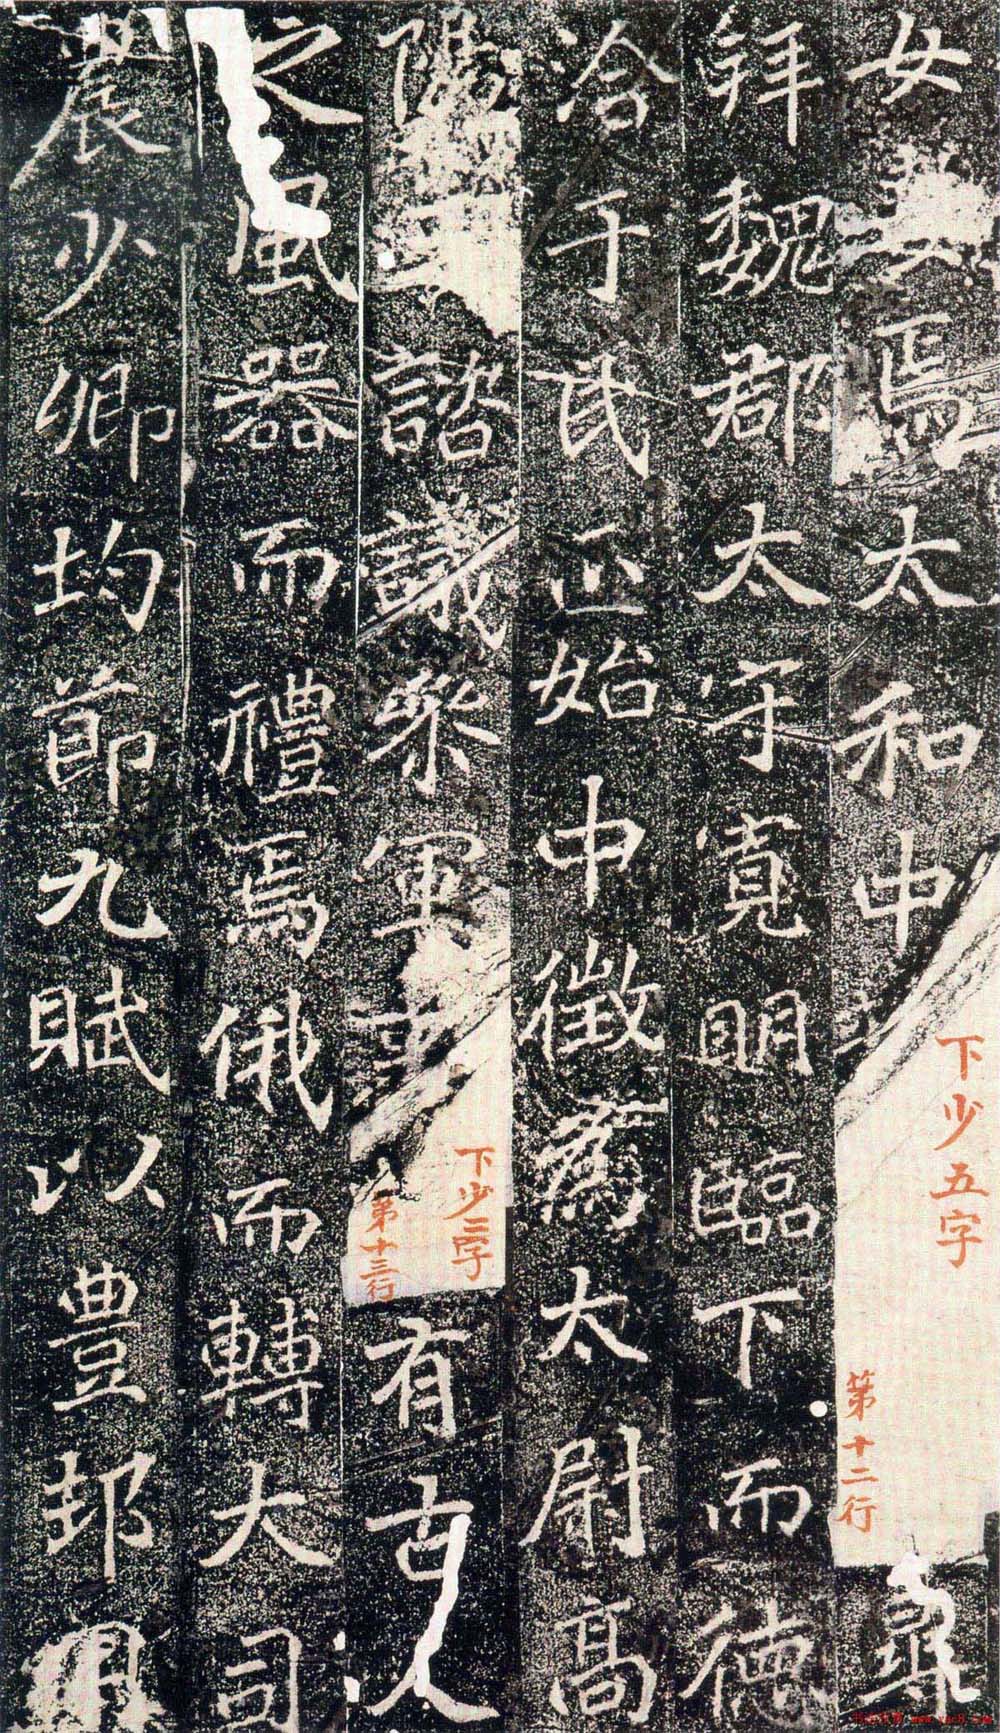 女妻焉太和中
下少五字
第十二行
尋
拜魏郡太守寬明臨下而德
洽于民正始中徵為太尉高
陽王諮議叅軍事
下少二字
第十三行
有古人
之風器而禮焉俄而轉大司
農少卿均節九賦以豊邦用